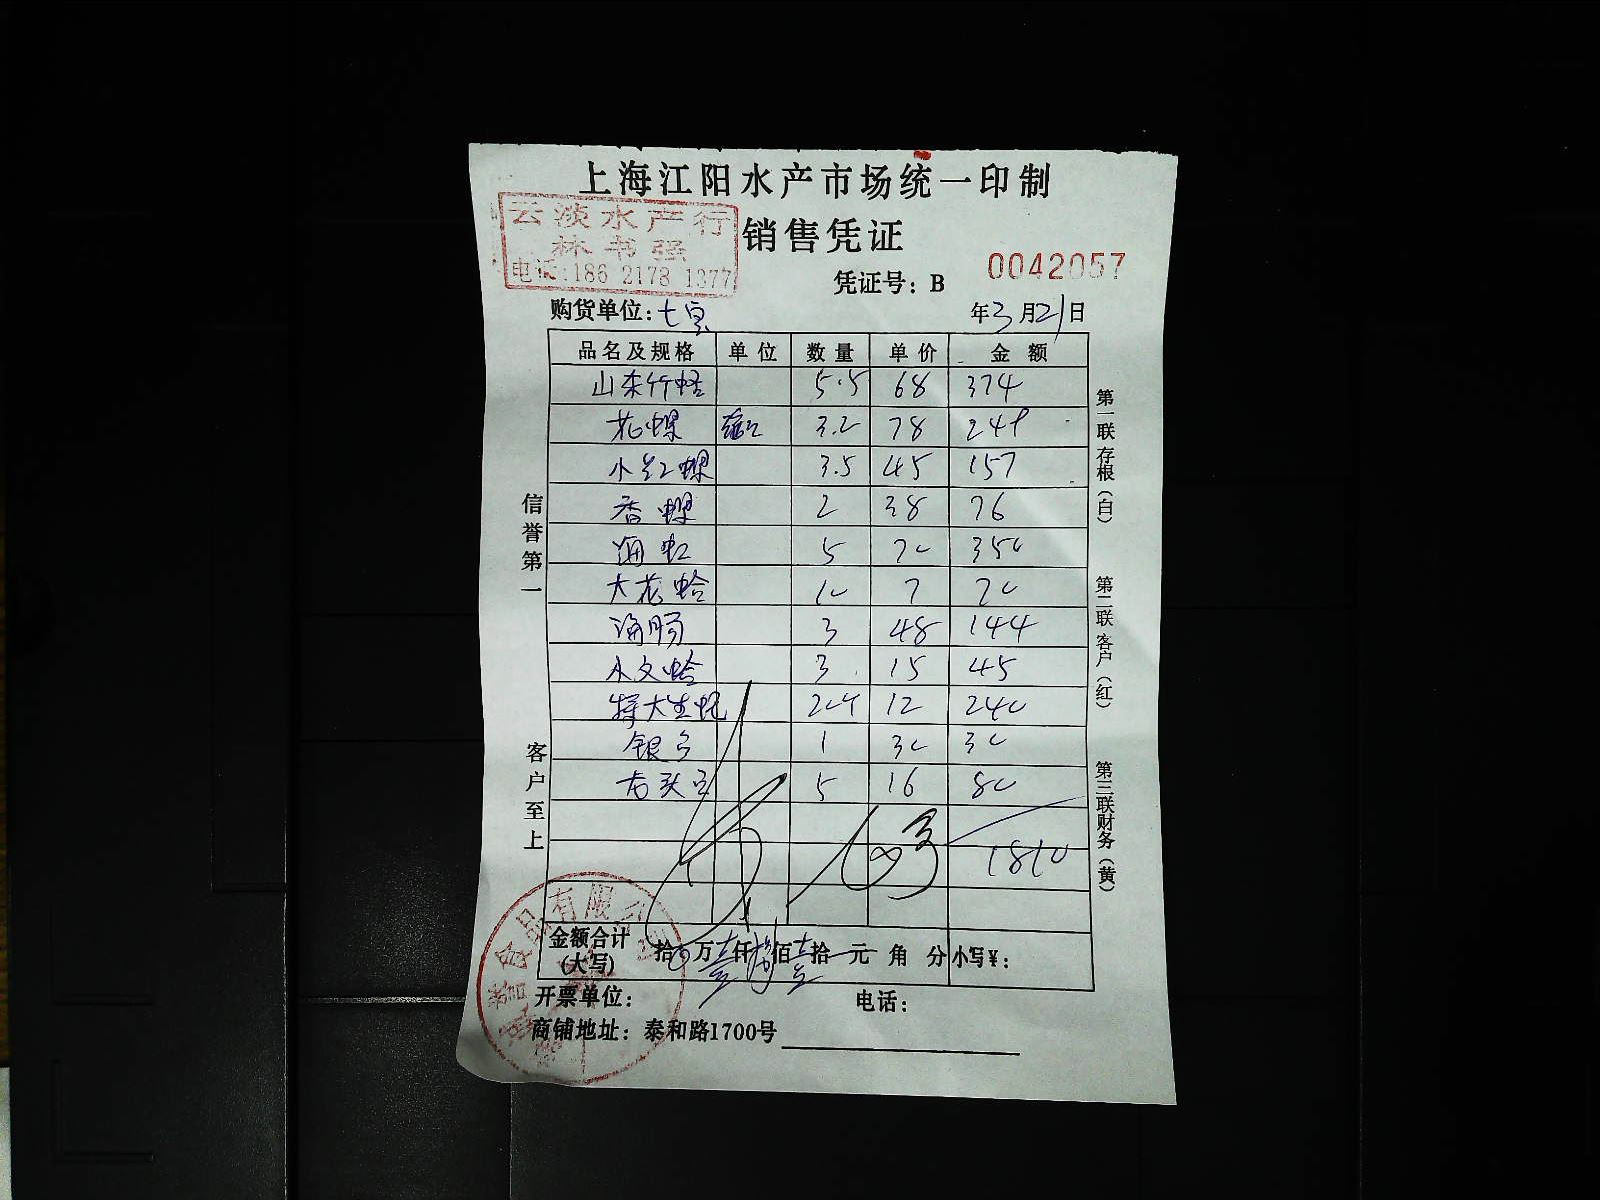 上海江阳水产市场统一印制
云淡水产行
林书强
电话:186 2178 1377
销售凭证
凭证号：B 0042057
购货单位：七宝 年3月21日
品名及规格 单位 数量 单价 金额
山东竹蛏 5.5 68 374
花螺 3.2 78 249
小红螺 3.5 45 157
香螺 2 38 76
海虹 5 70 350
大花蛤 10 7 70
海肠 3 48 144
小文蛤 3 15 45
特大生蚝 20个 12 240
银 1 30 30
5 16 80
1810
金额合计(大写) 拾 万壹仟捌佰壹拾 元 角 分 小写¥：
开票单位： 电话：
商铺地址：泰和路1700号
信誉第一
客户至上
第一联存根（白）
第二联客户（红）
第三联财务（黄）
食品有限公司